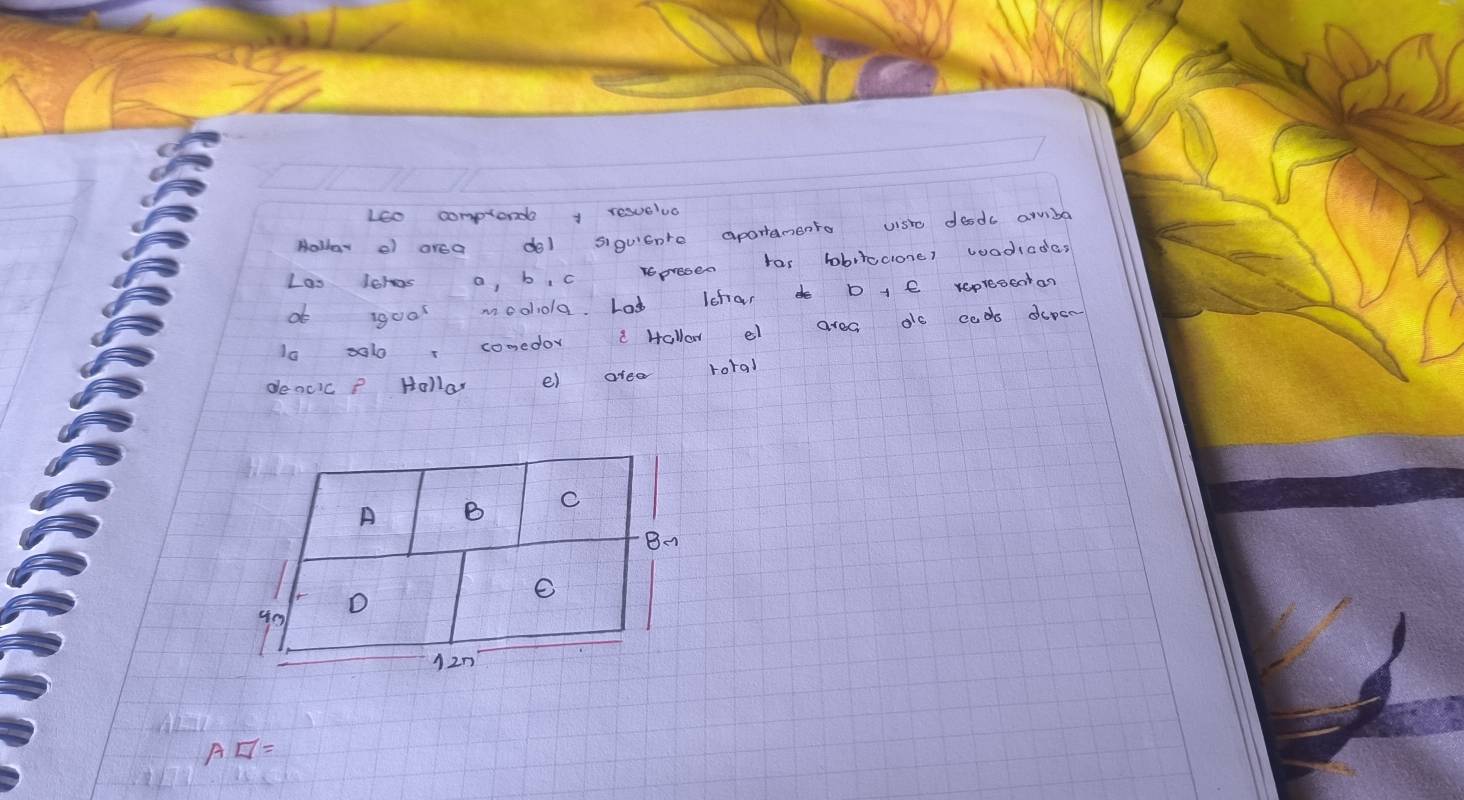 Leo comprendo y resuelvo
Hallar el area del siguiente apartamento visto desde arriba
Las letras a, b, c represen las habitaciones cuadradas
de igual medida. Las letras D y E representan
la sala y comedor ¿ Hallar el area de cada depen
dencia ? Hallar el area total
A B C
8m
D E
4m
12m
A □ =